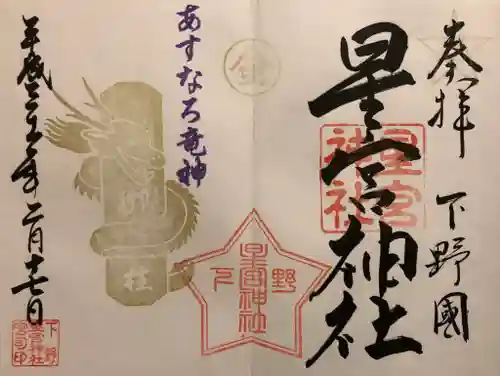 奉拝
下野國
星宮神社
星宮
神社
あすなろ竜神
下野
星宮神社
柱
平成三十一年二月十七日
下野
星宮神社
宮司印